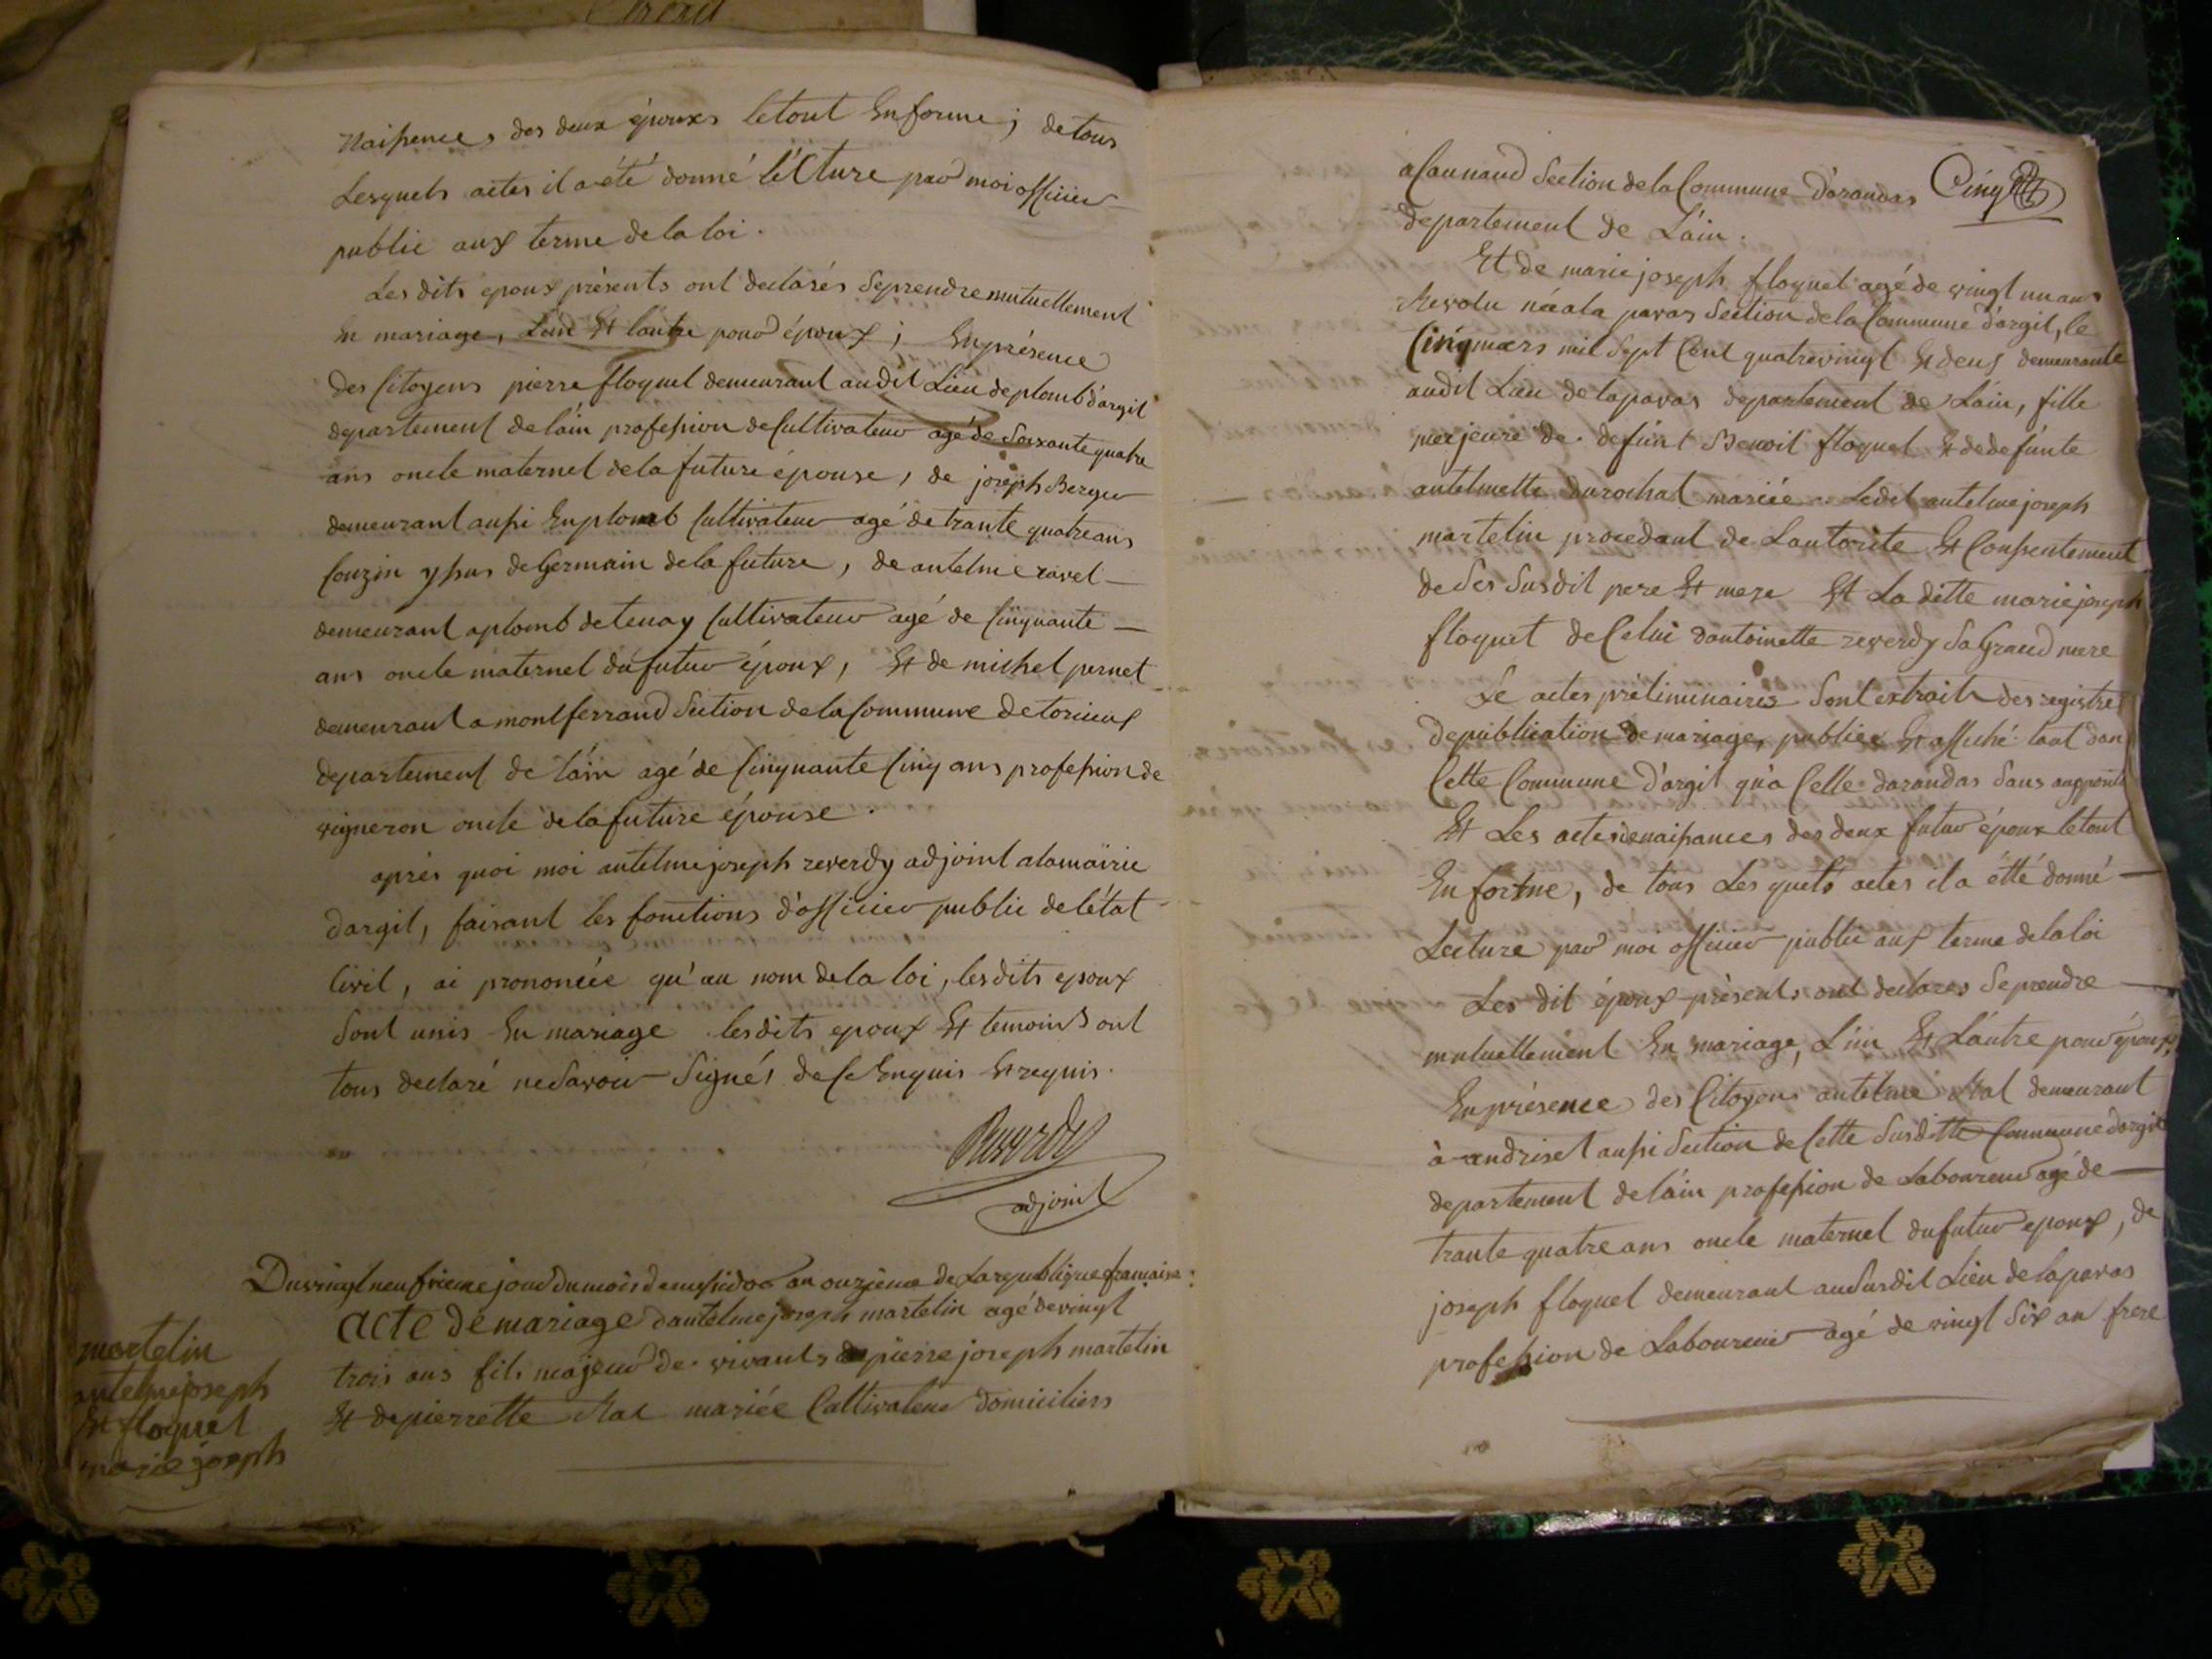 Naissences des deux épouxs letout En forme; de tous
Lesquels actes il a été donné léCture par moi officier
public aux terme de la loi.
Les dits époux présents ont declarés se prendre mutuellement
En mariage, L'un Et lautre pour époux; En présence
des Citoyens pierre floquet demeurant audit Lieu de plomb d'argit
departement de láin profession de Cultivateur agé de soixante quatre
ans oncle maternel de la future épouse, de joseph Berger
demeurant aussi En plomb Cultivateur agé de trante quatre ans
Couzin yssus de Germain de la future, de antelme ravet
demeurant a plomb de tenay Cultivateur agé de Cinquante
ans oncle maternel du futur époux, Et de michel pernet
demeurant a montferrand Section de la Commune de torcieux
departement de láin agé de Cinquante Cinq ans profession de
vigneron oncle de la future épouse.
aprés quoi moi antelme joseph reverdy adjoint a la mairie
dargit, faisant les fonctions d'officier public de l'état
Civil, ai prononcée qu'au nom de la loi, lesdits epoux
Sont unis En mariage lesdits epoux Et temoins ont
tous declaré ne Savoir Signés de Ce Enquis Et requis.
Reverdy
adjoint
Du vingt neufvieme jour du mois de messidor an onzieme de La republique francaise:
acte de mariage dantelme joseph martelin agé de vingt
trois ans fils majeur de vivants de pierre joseph martelin
Et de pierrette Nal mariée Cultivateur domiciliers
martelin
antelme joseph
Et floquet
marie joseph
Cinq
a Caunaud Section de la Commune d'arandas
departement de L'ain.
Et de marie joseph floquet agé de vingt un ans
Revolu née a la paras Section de la Commune d'argit, le
Cinq mars mil Sept Cent quatrevingt Et deux demeurante
audit Lieu de laparas departement de L'áin, fille
majeure de defunt Benoit floquet Et de defunte
antelmette durochat mariée. Ledit antelme joseph
martelin procedant de Lautorite Et Consentement
de Ses Susdit pere Et mere Et La ditte marie joseph
floquet de Celui dantoinette reverdy Sa Grand mere
Le actes préliminaires Sont extraits des registres
de publication de mariage, publiés Et affiché tant dan
Cette Commune d'argit qu'a Celle darandas Sans
Et Les actes de naissances des deux futur époux letout
En forme, de tous Les quels actes il a étté donné
Lecture par moi officier public aux terme de la loi
Les dit époux présents ont declares Se prendre
mutuellement En mariage, L'un Et L'autre pour époux,
En présence des Citoyens antelme Nal demeurant
à andriset aussi Section de Cette Susditte Commune dargit
departement de láin profession de Laboureur agé de
trante quatre ans oncle maternel du futur epoux, de
joseph floquet demeurant auSusdit Lieu de laparas
profession de Laboureur agé de vingt Six an frere